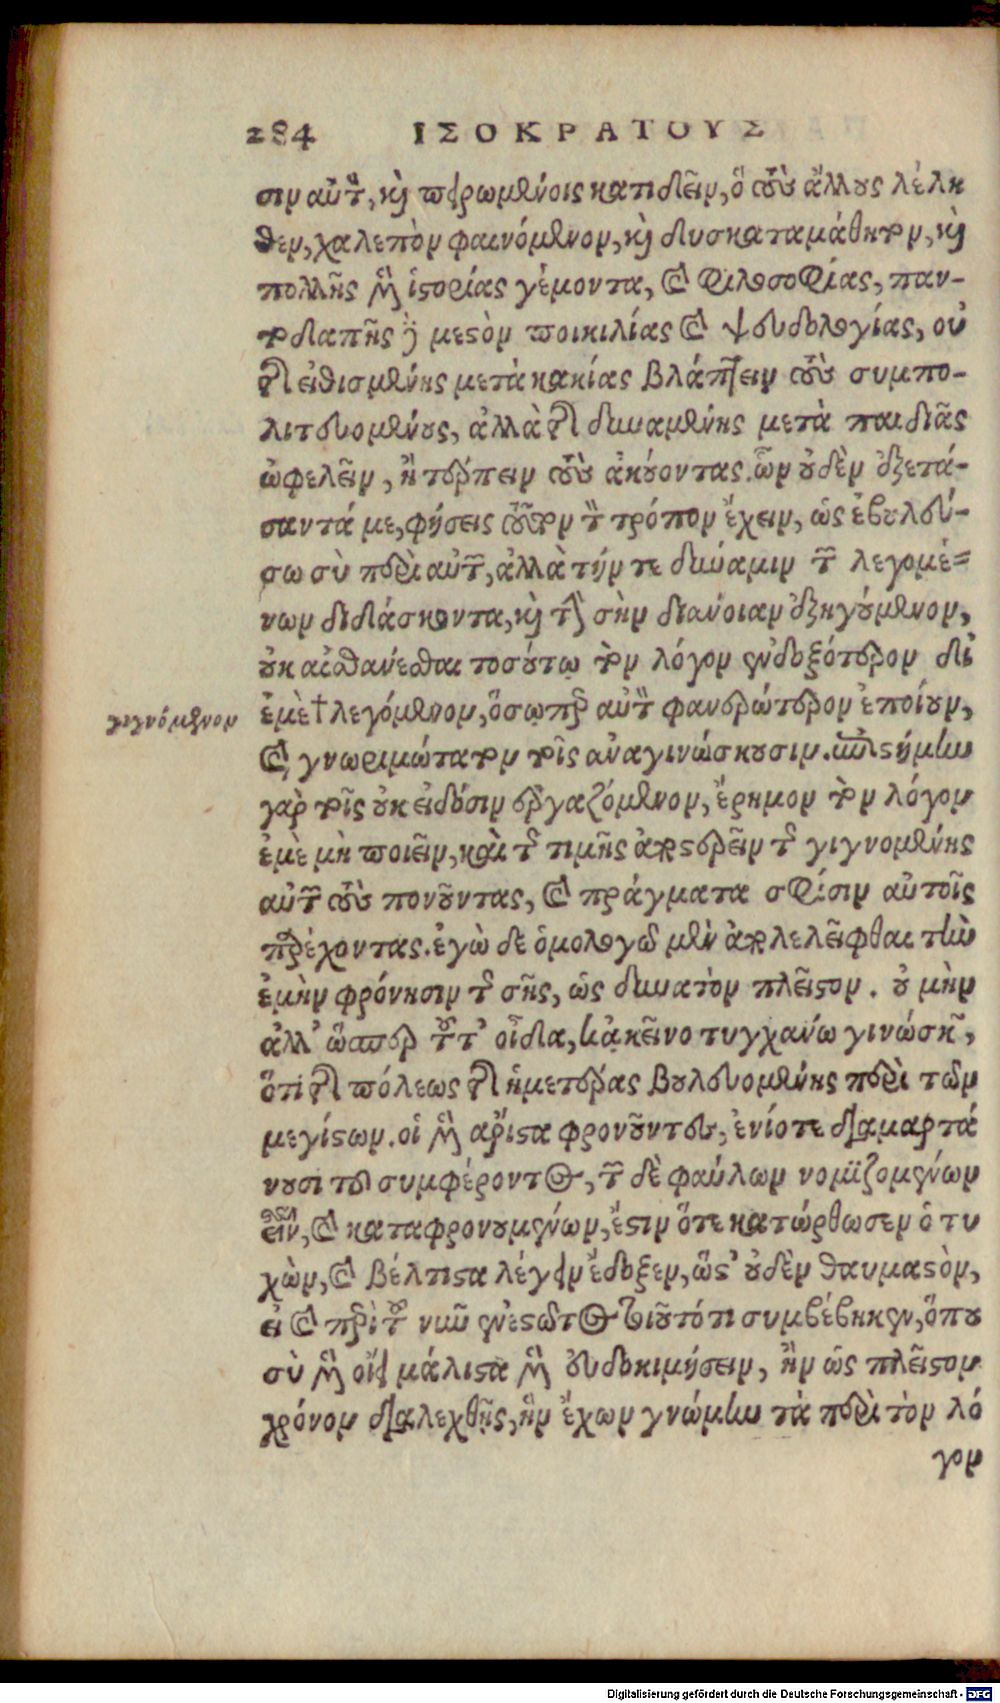 284 ΙΣΟΚΡΑΤΟΥΣ
σιν αὐτὸν, καὶ πειρωμένοις κατιδεῖν, ὃ τοὺς ἄλλους λέλη
θεν, χαλεπὸν φαινόμενον, καὶ δυσκαταμάθητον, καὶ
πολλῆς μὲν ἱστορίας γέμοντα, καὶ φιλοσοφίας, παν-
τοδαπῆς δὲ μεστὸν ποικιλίας καὶ ψευδολογίας, οὐ
τῆς εἰθισμένης μετὰ κακίας βλάπτειν τοὺς συμπο-
λιτευομένους, ἀλλὰ τῆς δυναμένης μετὰ παιδιᾶς
ὠφελεῖν, ἢ τέρπειν τοὺς ἀκούοντας. ὧν οὐδὲν ἐξετά-
σαντά με, φήσεις τοῦτον τὸν τρόπον ἔχειν, ὡς ἐβουλεύ-
σω σὺ περὶ αὐτῶν, ἀλλὰ τήν τε δύναμιν τῶν λεγομέ-
νων διδάσκοντα, καὶ τὴν σὴν διάνοιαν ἐξηγούμενον,
οὐκ αἰσθάνεσθαι τοσούτῳ τὸν λόγον ἐνδοξότερον δι'
γιγνόμενον
ἐμὲ † λεγόμενον, ὅσῳπερ αὐτὸν φανερώτερον ἐποίουν,
καὶ γνωριμώτατον τοῖς ἀναγινώσκουσιν. ἐπιστήμην
γὰρ τοῖς οὐκ εἰδόσιν ἐργαζόμενον, ἔρημον τὸν λόγον
ἐμὲ μὴ ποιεῖν, καὶ τῆς τιμῆς ἀποστερεῖν τῆς γιγνομένης
αὐτῶν τοὺς πονοῦντας, καὶ πράγματα σφίσιν αὐτοῖς
παρέχοντας. ἐγὼ δὲ ὁμολογῶ μὲν ἀπολελεῖφθαι τὴν
ἐμὴν φρόνησιν τῆς σῆς, ὡς δυνατὸν πλεῖστον. οὐ μὴν
ἀλλ' ὥσπερ τοῦτ' οἶδα, κἀκεῖνο τυγχάνω γινώσκων,
ὅτι τῆς πόλεως τῆς ἡμετέρας βουλευομένης περὶ τῶν
μεγίστων. οἱ μὲν ἄριστα φρονοῦντες, ἐνίοτε διαμαρτά
νουσι τοῦ συμφέροντος, τῶν δὲ φαύλων νομιζομένων
εἶναι, καὶ καταφρονουμένων, ἔστιν ὅτε κατώρθωσεν ὁ τυ
χὼν, καὶ βέλτιστα λέγειν ἔδοξεν, ὥστ' οὐδὲν θαυμαστὸν,
εἰ καὶ περὶ τοῦ νῦν ἐνεστῶτος τοιοῦτό τι συμβέβηκεν, ὅπου
σὺ μὲν οἴει μάλιστα μὲν εὐδοκιμήσειν, ἢν ὡς πλεῖστον
χρόνον διαλεχθῇς, ἣν ἔχων γνώμην τὰ περὶ τὸν λό
γον
Digitalisierung gefördert durch die Deutsche Forschungsgemeinschaft - DFG